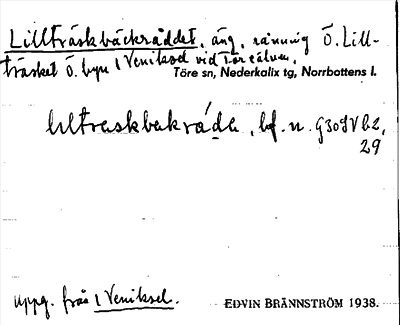 Lillträskbäckråddet, äng, ränning Ö. Lill-
träsket Ö. byn 1 Veniksel vid Töreälven.
Töre sn, Nederkalix tg, Norrbottens l.
bf. n. G3o9Vb2,
29
uppg. från 1 Veniksel.
EDVIN BRÄNNSTRÖM 1938.